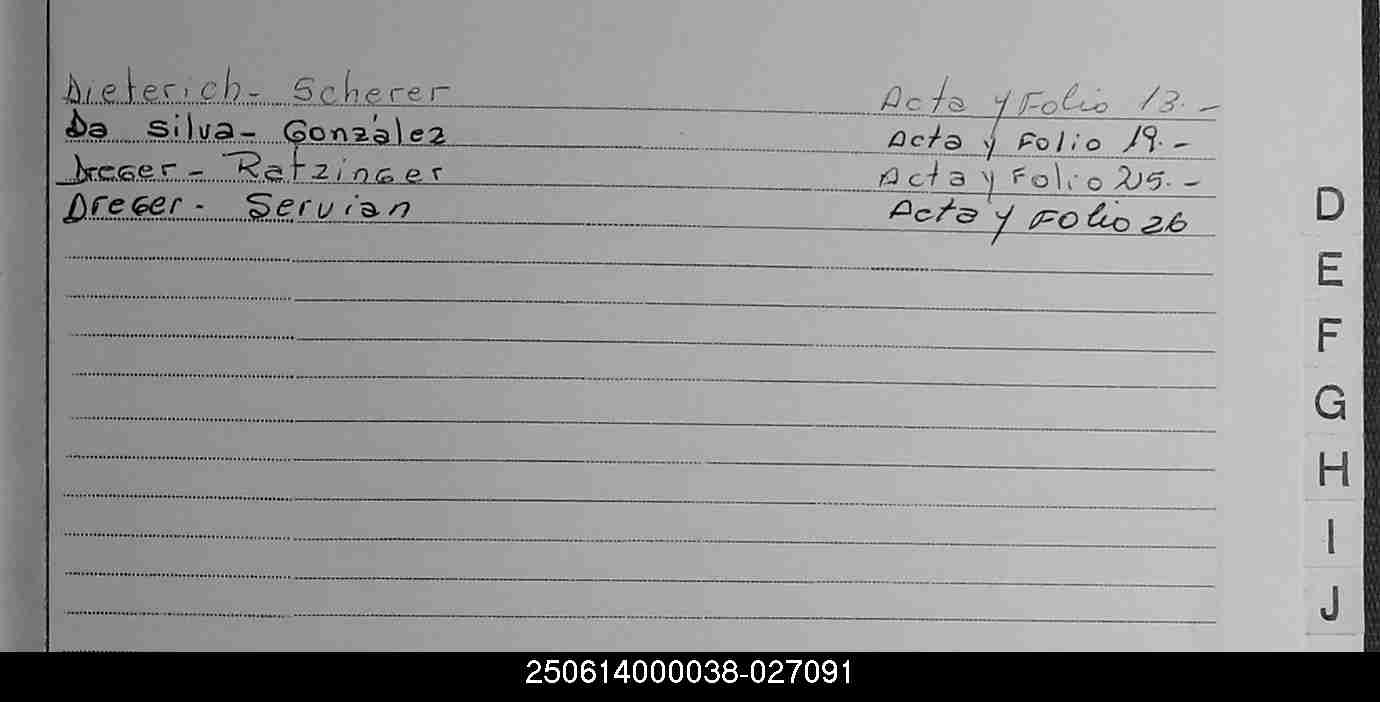 Dieterich - Scherer Acta y Folio 13.-
Da Silva - González Acta y Folio 19.-
Dreger - Ratzinger Acta y Folio 25.-
Dreger - Servian Acta y Folio 26
D
E
F
G
H
I
J
250614000038-027091